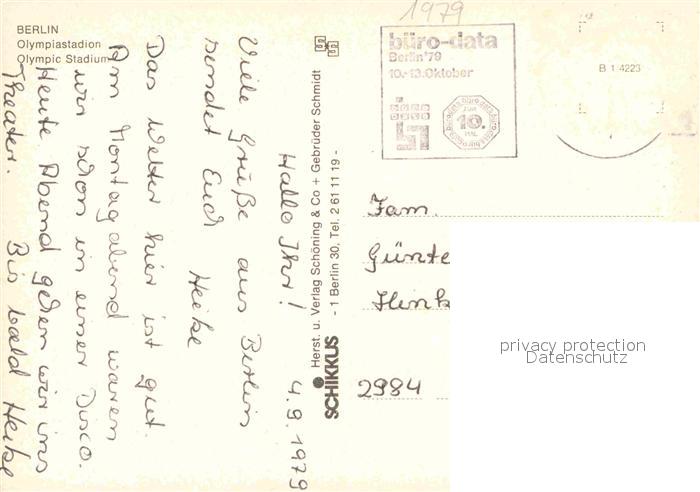 1979
BERLIN
Olympiastadion
Olympic Stadium
büro-data
Berlin'79
10.-13.Oktober
10.
B 1 4223
4.9.1979
Hallo Ihr!
Viele Grüße aus Berlin
sendet Euch Heike
Das Wetter hier ist gut.
Am Montagabend waren
wir schon in einer Disco.
Heute Abend gehen wir ins
Theater.
Bis bald Heike
SCHIKKUS
Herst. u. Verlag Schöning & Co + Gebrüder Schmidt
- 1 Berlin 30, Tel. 2 61 11 19 -
Fam.
Günte
Hink
2984
privacy protection
Datenschutz